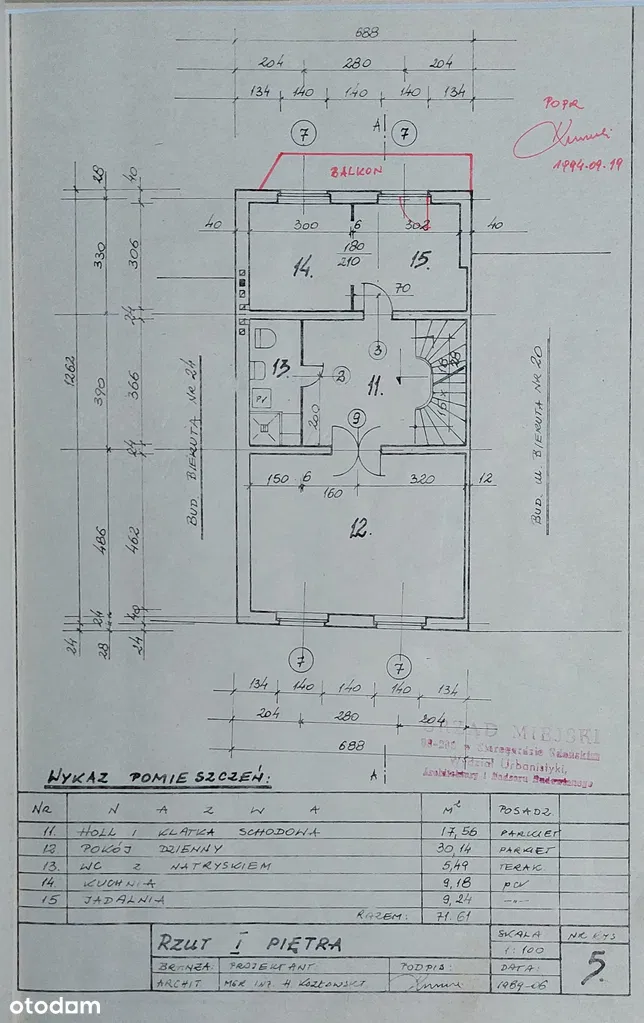 688
204 280 204
134 140 140 140 134
7 A 7
POPR
1994.09.19
BALKON
28 40
40 300 6 302 40
180
210
330 306
14. 15.
70
24 24
3
1262
390 366
13. 2 11.
PV
200
9
16 x 28
BUD. BIERUTA NR 24
BUD. UL. BIERUTA NR 20
24
150 6 320 12
160
12.
486 462
24 40
24 28 24
7 7
134 140 140 140 134
204 280 204
688
A
URZĄD MIEJSKI
83-200 w Starogardzie Gdańskim
Wydział Urbanistyki,
Architektury i Nadzoru Budowlanego
WYKAZ POMIESZCZEŃ:
NR NAZWA M² POSADZ
11. HOLL I KLATKA SCHODOWA 17,56 PARKIET
12 POKÓJ DZIENNY 30,14 PARKIET
13. WC Z NATRYSKIEM 5,49 TERAK.
14. KUCHNIA 9,18 PCV
15 JADALNIA 9,24 -"-
RAZEM: 71.61
RZUT I PIĘTRA
SKALA NR RYS
1:100 5.
BRANŻA: PROJEKTANT: PODPIS: DATA:
ARCHIT. MGR INŻ. H KOZŁOWSKI 1989-06
otodom